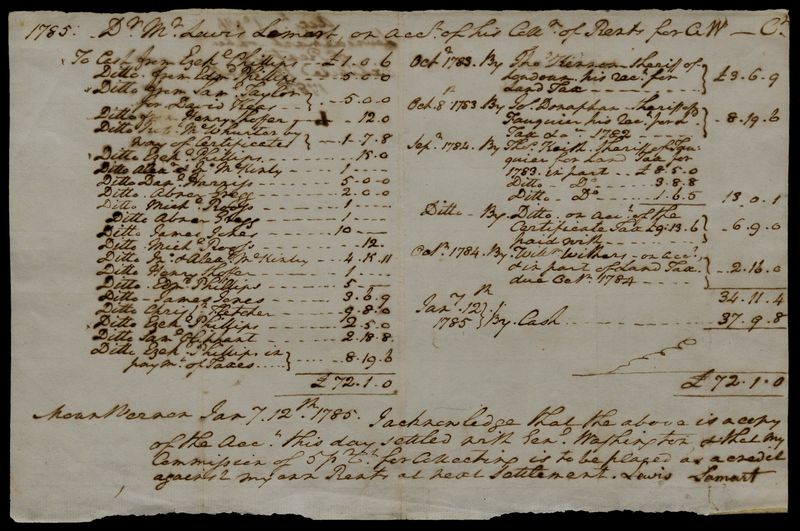 1785: Dr. Mr. Lewis Lemart, on acct. of his Colln. of Rents for GW — Cr.
To Cash from Ezekl. Phillips - £1.0.6
Ditto from Edmd. Phillips - 5.0.0
Ditto from Saml. Taylor
for David Keas } - 5.0.0
Ditto from Henry Shoffer - 12.0
Ditto McWhurter by
way of Certificates } - 1.7.8
Ditto Ezekl. Phillips - 15.0
Ditto Alexr. & Jno. McKinly - 1
Ditto Danl. Harriss - 5.0.0
Ditto Abner Gregg - 2.0.0
Ditto Michl. Roofs - 1
Ditto Abner Gregg - 1
Ditto James Jones - 10
Ditto Michl. Roofs - 12.
Ditto Jno. & Alexr. McKinly - 4.15.11
Ditto Henry Shoffer - 1
Ditto Edmd. Phillips - 5
Ditto James Jones - 3.6.9
Ditto Chrisr. Fletcher - 9.8.0
Ditto Ezekl. Phillips - 2.5.0
Ditto Saml. - 2.18.8
Ditto Ezekl. Phillips in
paymt. of Taxes } 8.19.6
£72.1.0
Octr. 1783. By Thos. Kennan Sheriff of
Loudoun his Rect. for
Land Tax } £3.6.9
Oct. 8th 1783 By Jos. Donaphan Sheriff of
Fauquier his Rect. for Ld.
Tax &ca. 1782 } - 8.19.6
Sepr. 1784. By Thos. Keith Sheriff of Fau-
quier for Land Tax for
1783 in part - £8.5.0
Ditto - Do. - 3.8.8
Ditto - Do. - 1.6.5 13.0.1
Ditto - By Ditto on acct. of the
Certificate Tax £9.13.6
paid with } - 6.9.0
Octr. 1784. By Willm. Withers on acct.
& in part of Land Tax
due Octr. 1784 } - 2.16.0
34.11.4
Jany. 12th
1785 } By Cash 37.9.8
£72.1.0
Mount Vernon Jany. 12th 1785. I acknowledge that the above is a copy
of the Acct. this day settled with Genl. Washington, & that my
Commission of 5 pr. Ct. for Collecting is to be placed as a credit
against my own Rents at next Settlement. Lewis Lemart